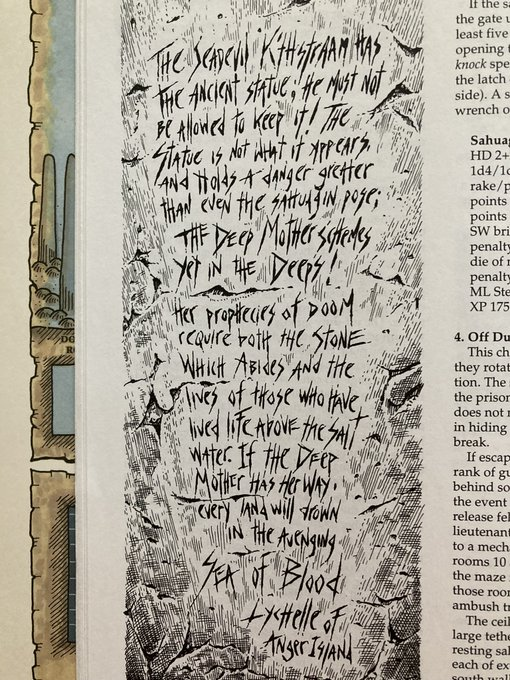 The Seadevil Kthstraam has
the ancient statue! He must not
be allowed to keep it! The
statue is not what it appears,
and holds a danger greater
than even the sahuagin pose;
The Deep Mother schemes
yet in the Deeps!
Her prophecies of DOOM
require both the STONE
Which Abides and the
lives of those who have
lived life above the salt
water. If the Deep
Mother has her way,
every land will drown
in the Avenging
Sea of Blood
Lychelle of
Anger Island
If the sa
the gate u
least five
opening t
knock spe
the latch
side). A s
wrench o
Sahuag
HD 2+
1d4/1d
rake/p
points
points
SW bri
penalty
die of r
penalty
ML Ste
XP 175
4. Off Du
This ch
they rotat
tion. The
the prison
does not r
in hiding
break.
If escap
rank of gu
behind so
the event
release fel
lieutenant
to a mech
rooms 10
the maze
those roor
ambush tr
The ceil
large tethe
resting sal
each of ex
south wall